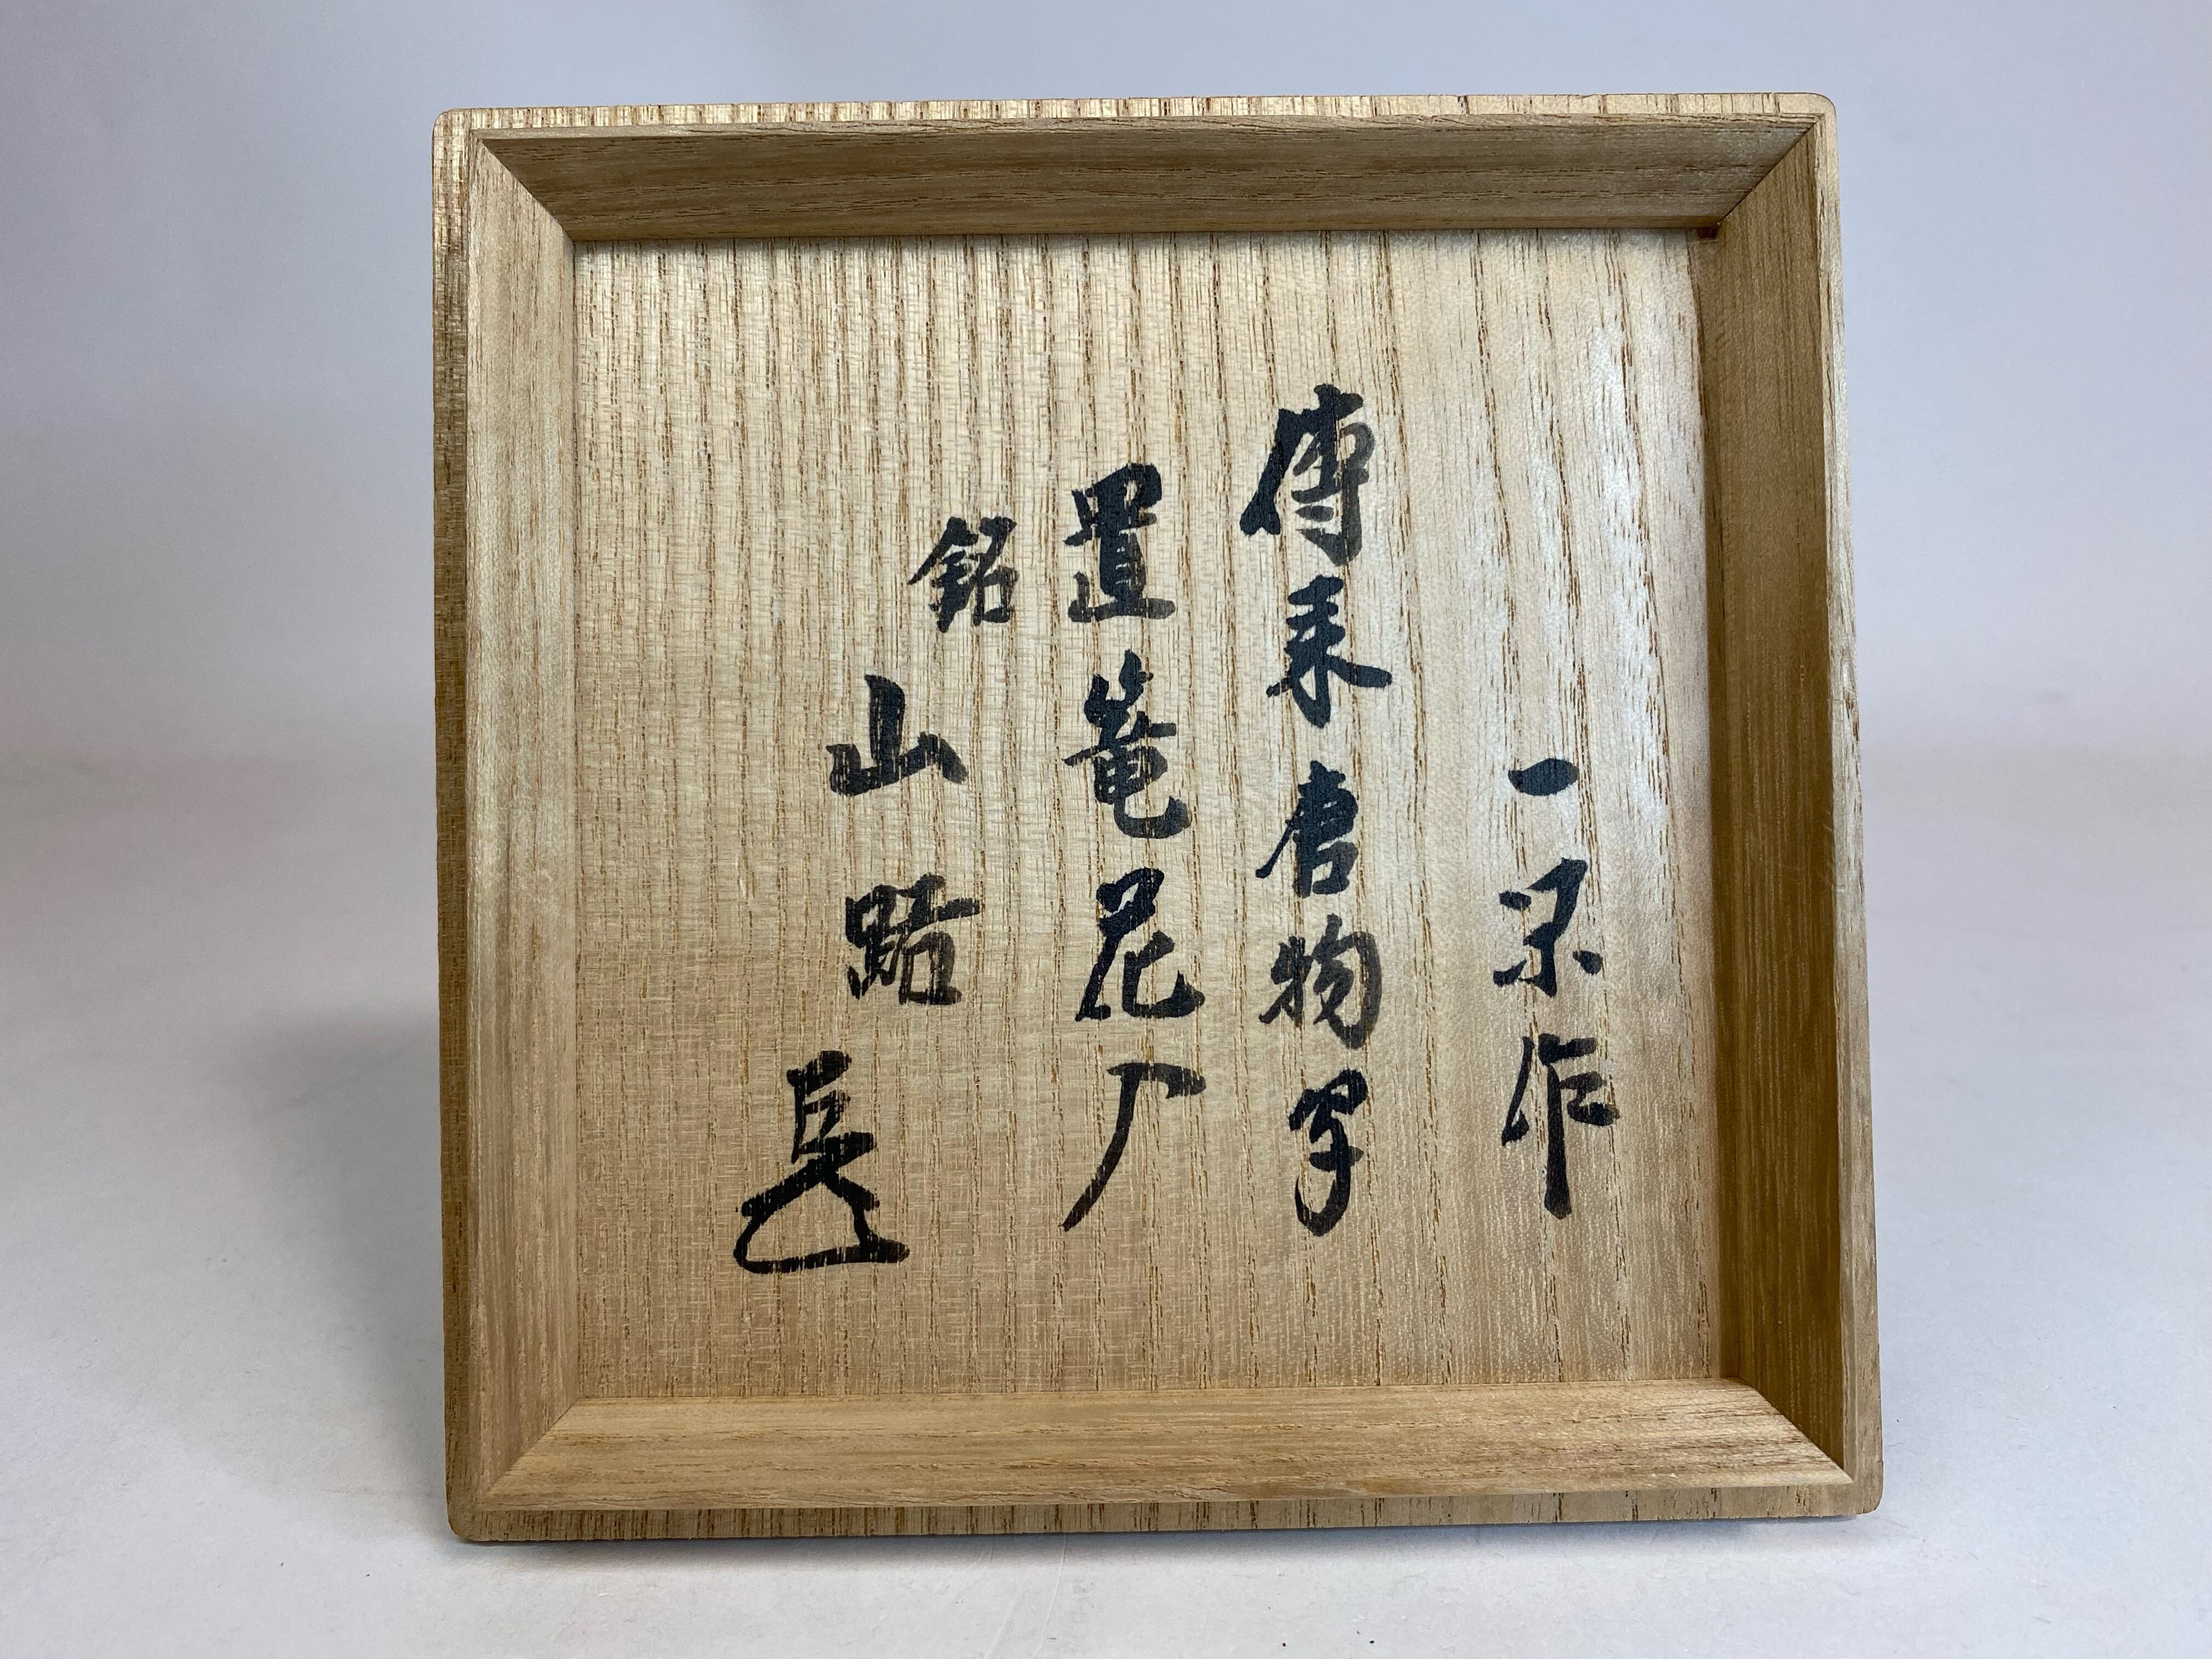 一 作
傳来唐物写
置篭花入
銘 山路